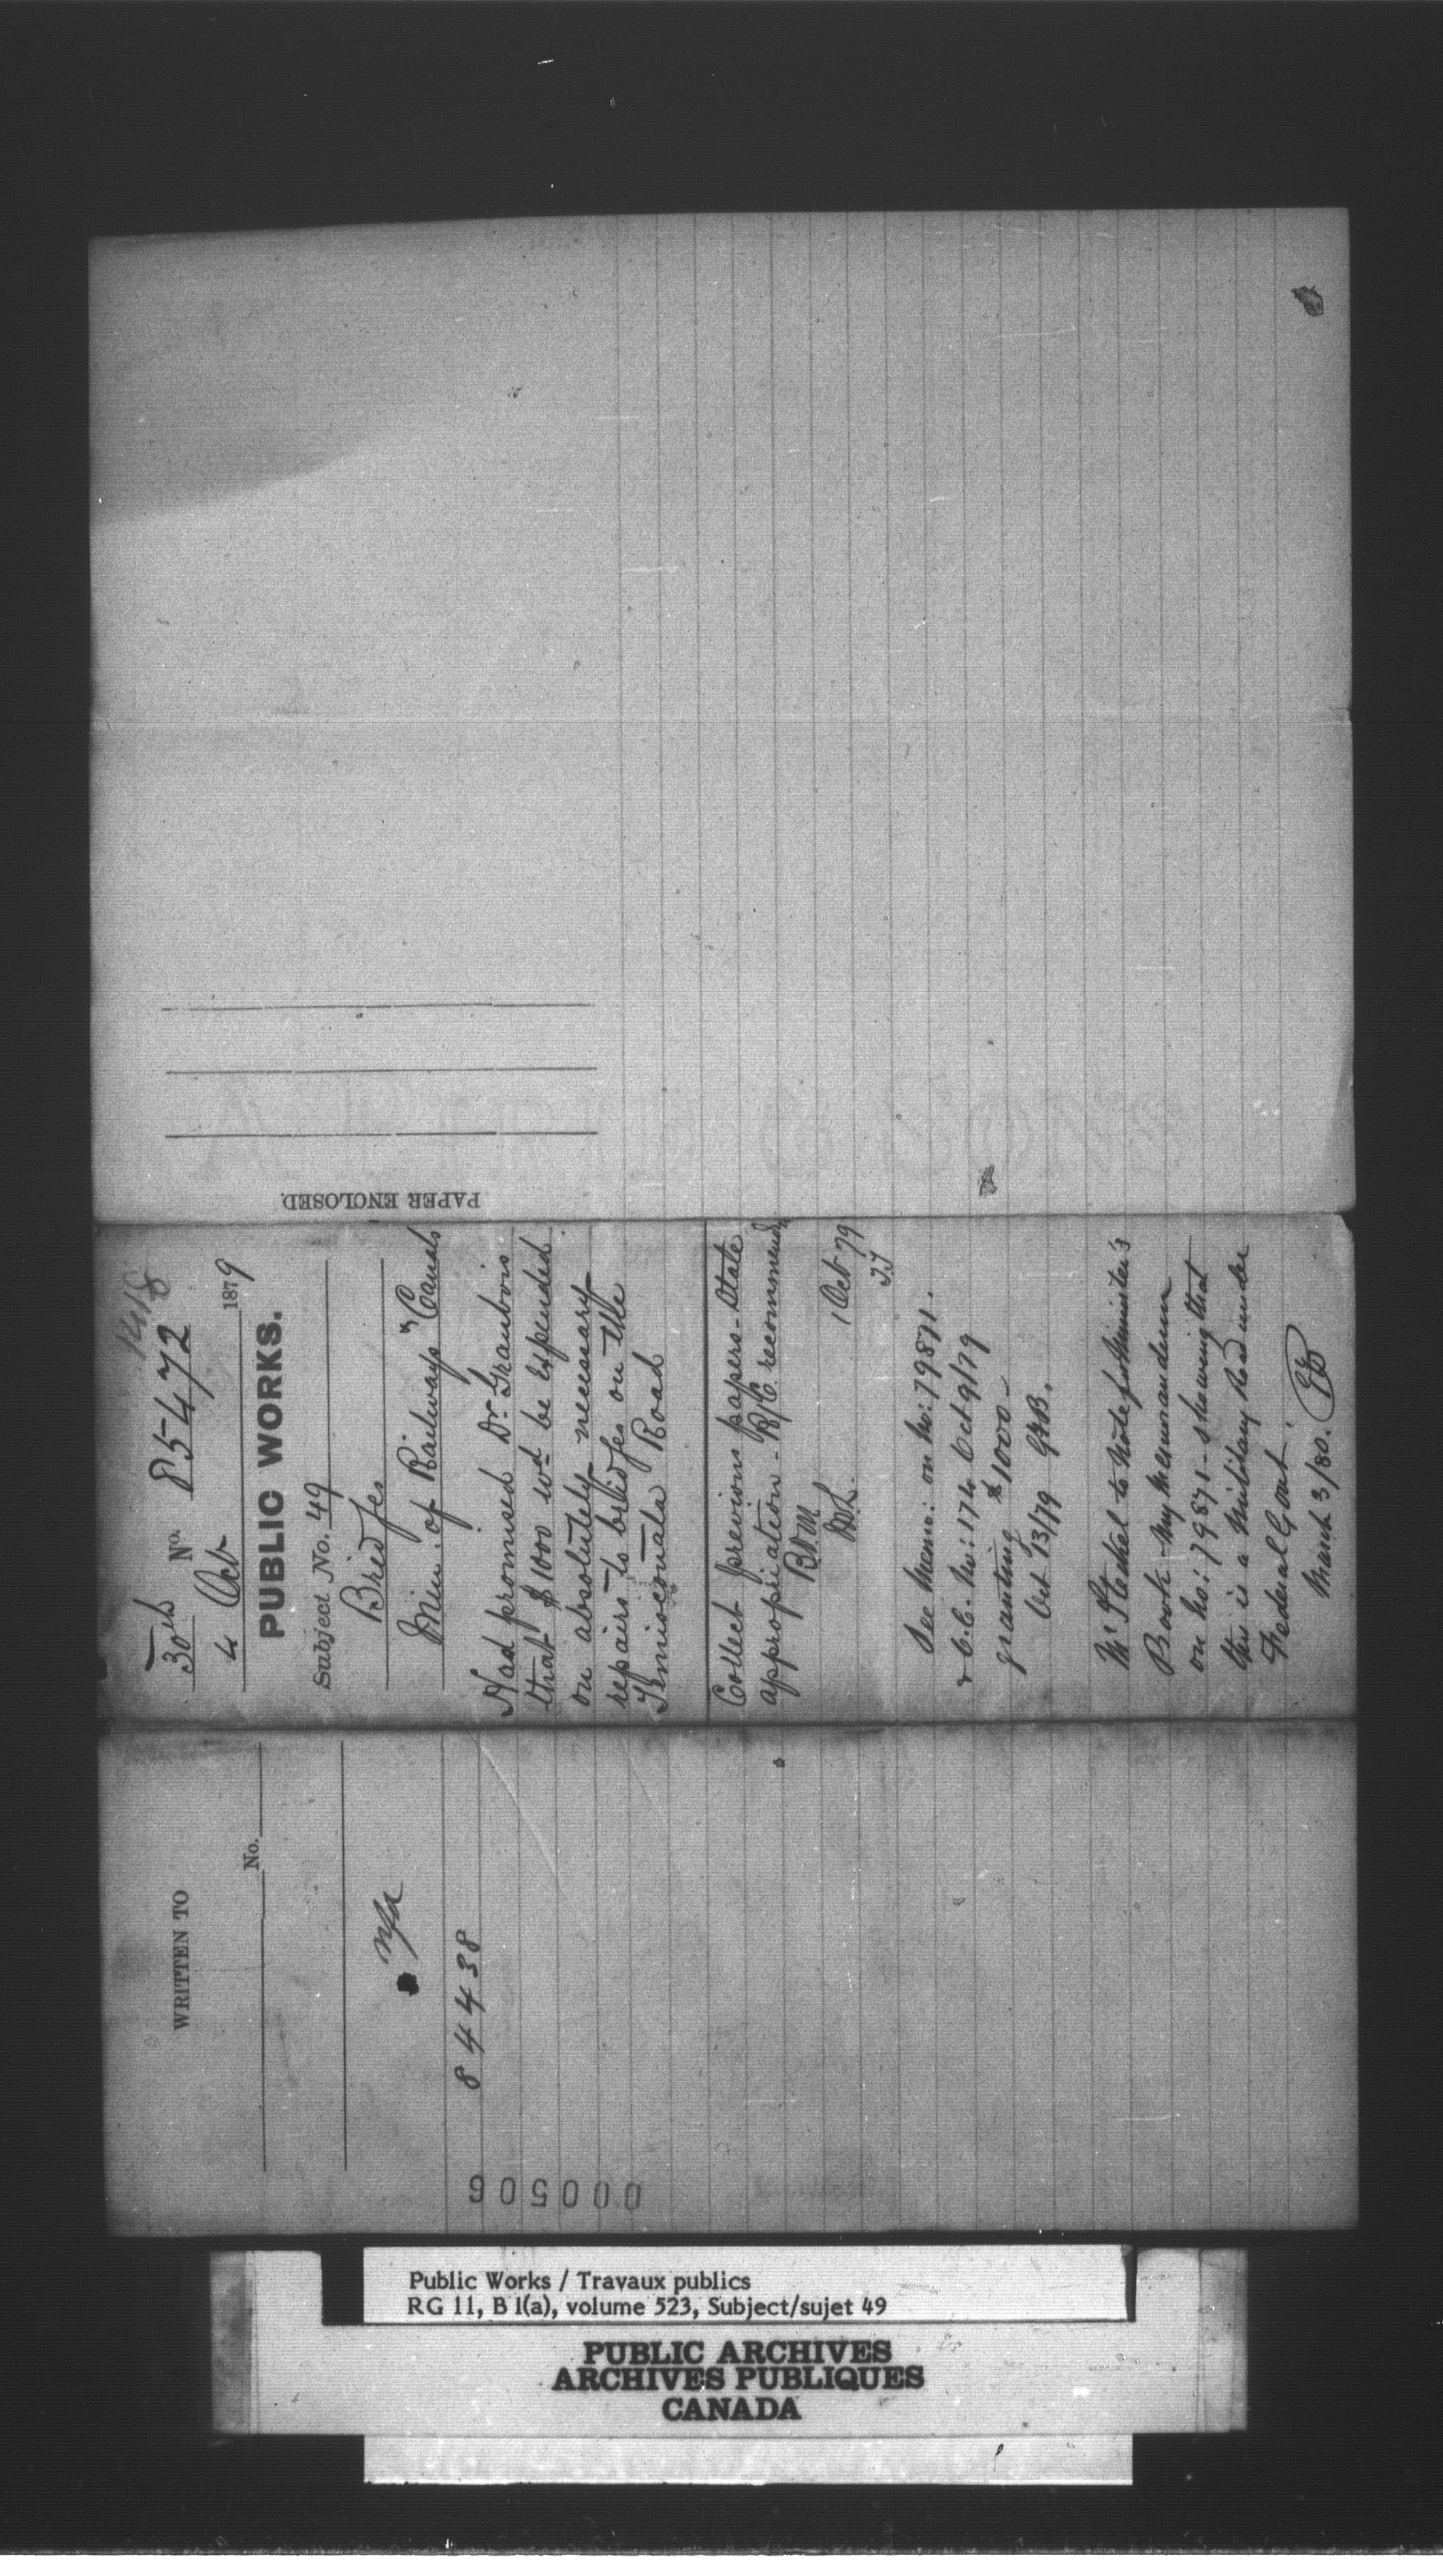 WRITTEN TO
No.
8 4 4 3 8
000506
1418
30th No. 85472
4 Oct 1879
PUBLIC WORKS.
Subject No. 49
Bridges
Min. of Railways & Canals
Had promised Dr. Grandbois
that $1000 wd be expended
on absolutely necessary
repairs to bridges on the
Temiscouata Road
Collect previous papers - State
appropriation - R/C. recommends
1 Oct 79
See Memo: on No: 79871.
& O.C. No: 174 Oct 9/79
granting $1000 -
Oct 13/79 GFB.
Mr Steckel to note for Minister's
Book - My Memorandum
on No: 79871 - showing that
this is a Military Road under
Federal Govt.
March 3/80.
PAPER ENCLOSED.
Public Works / Travaux publics
RG 11, B 1(a), volume 523, Subject/sujet 49
PUBLIC ARCHIVES
ARCHIVES PUBLIQUES
CANADA